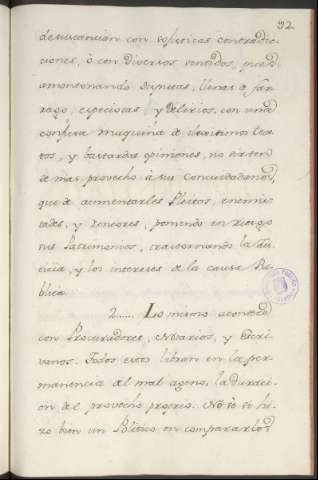 92
desustancian con sofisticas contradic
ciones, ò con diversos sentidos, pues
amontonando disputas, llenas de far
rago, especiosas y delirios, con una
confusa maquina de
tos, y bastardas opiniones, no sirven
de mas provecho à sus Conciudadanos,
que de aumentarles Pleitos, enemis
tades, y rencores, poniendo en riesgo
sus Patrimonios, trastornando la Jus
ticia, y los intereses de la causa Pu
blica.
2...... Lo mismo acontece
con Procuradores, Notarios, y Escri
vanos. Todos estos libran en la per
manencia del mal ageno, la duraci
on del provecho proprio. No se si hi
zo bien un Politico en compararlos